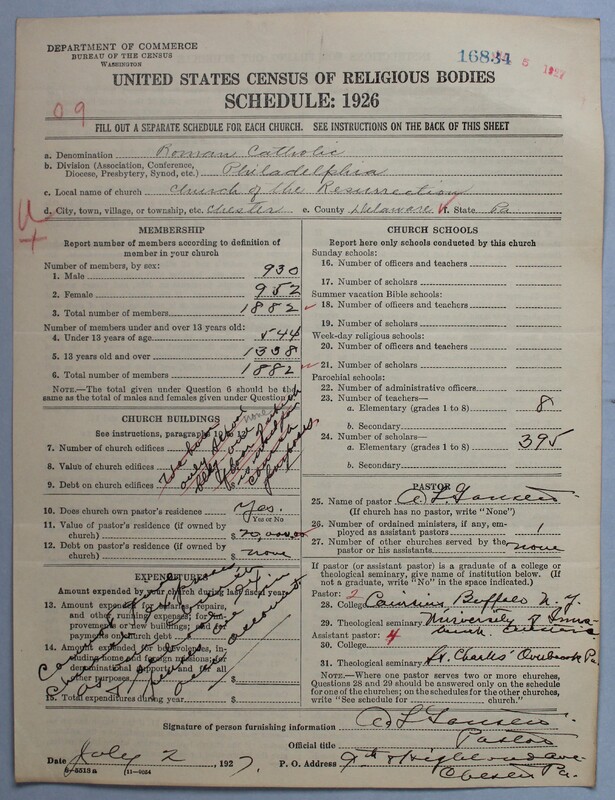 DEPARTMENT OF COMMERCE
BUREAU OF THE CENSUS
WASHINGTON
16834
5 1927
UNITED STATES CENSUS OF RELIGIOUS BODIES
SCHEDULE: 1926
09
FILL OUT A SEPARATE SCHEDULE FOR EACH CHURCH. SEE INSTRUCTIONS ON THE BACK OF THIS SHEET
a. Denomination Roman Catholic
b. Division (Association, Conference,
Diocese, Presbytery, Synod, etc.) Philadelphia
c. Local name of church Church of the Resurrection
d. City, town, village, or township, etc. Chester e. County Delaware f. State Pa
MEMBERSHIP
Report number of members according to definition of
member in your church
Number of members, by sex:
1. Male 930
2. Female 952
3. Total number of members 1882
Number of members under and over 13 years old:
4. Under 13 years of age 544
5. 13 years old and over 1338
6. Total number of members 1882
NOTE.—The total given under Question 6 should be the
same as the total of males and females given under Question
CHURCH BUILDINGS
none
See instructions, paragraphs
7. Number of church edifices
8. Value of church edifices
9. Debt on church edifices
We have
only school
Bldg one
floor of which
is used for
church
purposes
10. Does church own pastor's residence? Yes.
Yes or No
11. Value of pastor's residence (if owned by
church) $ 20,000.00
12. Debt on pastor's residence (if owned by
church) $ none
EXPENDITURES
Amount expended by your church during last fiscal year
13. Amount expended for salaries, repairs,
and other running expenses; for
improvements or new buildings; and for
payments of church debt
14. Amount expended for benevolences, in-
cluding home and foreign missions; for
denominational support; and for all
other purposes
15. Total expenditures during year
Cannot
account
CHURCH SCHOOLS
Report here only schools conducted by this church
Sunday schools:
16. Number of officers and teachers
17. Number of scholars
Summer vacation Bible schools:
18. Number of officers and teachers
19. Number of scholars
Week-day religious schools:
20. Number of officers and teachers
21. Number of scholars
Parochial schools:
22. Number of administrative officers
23. Number of teachers—
a. Elementary (grades 1 to 8) 8
b. Secondary
24. Number of scholars—
a. Elementary (grades 1 to 8) 395
b. Secondary
PASTOR
25. Name of pastor
(If church has no pastor, write "None")
26. Number of ordained ministers, if any, em-
ployed as assistant pastors 1
27. Number of other churches served by the
pastor or his assistants none
If pastor (or assistant pastor) is a graduate of a college or
theological seminary, give name of institution below. (If
not a graduate, write "No" in the space indicated.)
Pastor: 2
28. College Canisius Buffalo N.Y.
29. Theological seminary University of Inns-
bruck. Austria
Assistant pastor: 4
30. College
31. Theological seminary St. Charles' Overbrook Pa.
NOTE.—Where one pastor serves two or more churches,
Questions 28 and 29 should be answered only on the schedule
for one of the churches; on the schedules for the other churches,
write "See schedule for church."
Signature of person furnishing information
Official title Pastor
Date July 2, 1927. P. O. Address 9th & Highland Ave.
Chester Pa.
8-5513a (11-9024